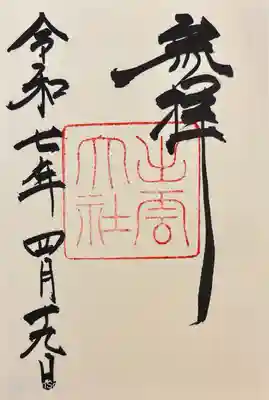 参拝
出雲
大社
令和七年四月十九日